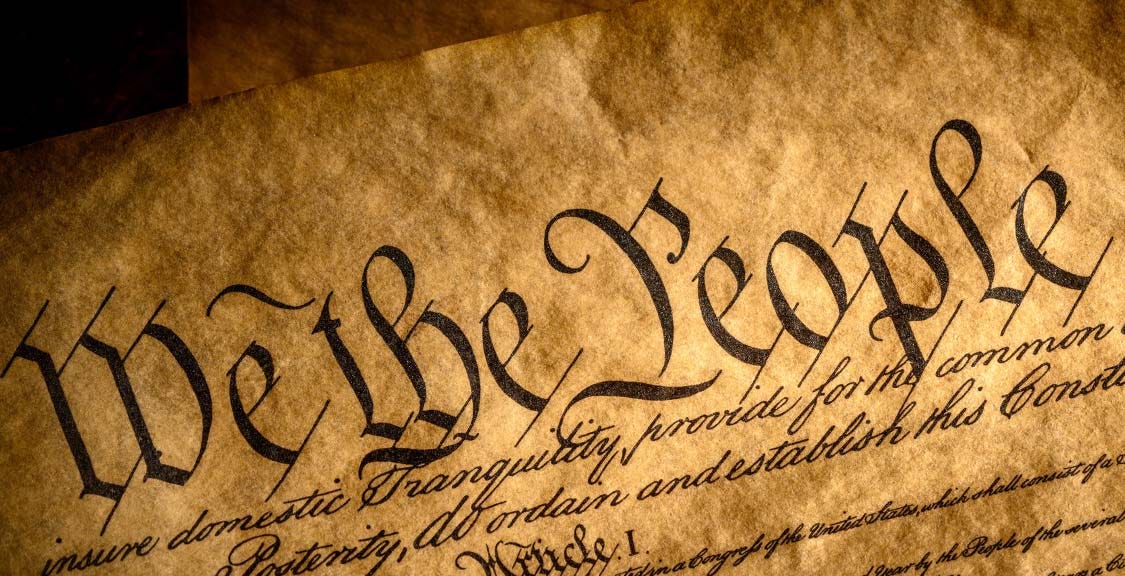 We the People
insure domestic Tranquility, provide for the common
Posterity, do ordain and establish this
Article. I.
in a Congress of the United States, which shall consist of a
Year by the People of the several